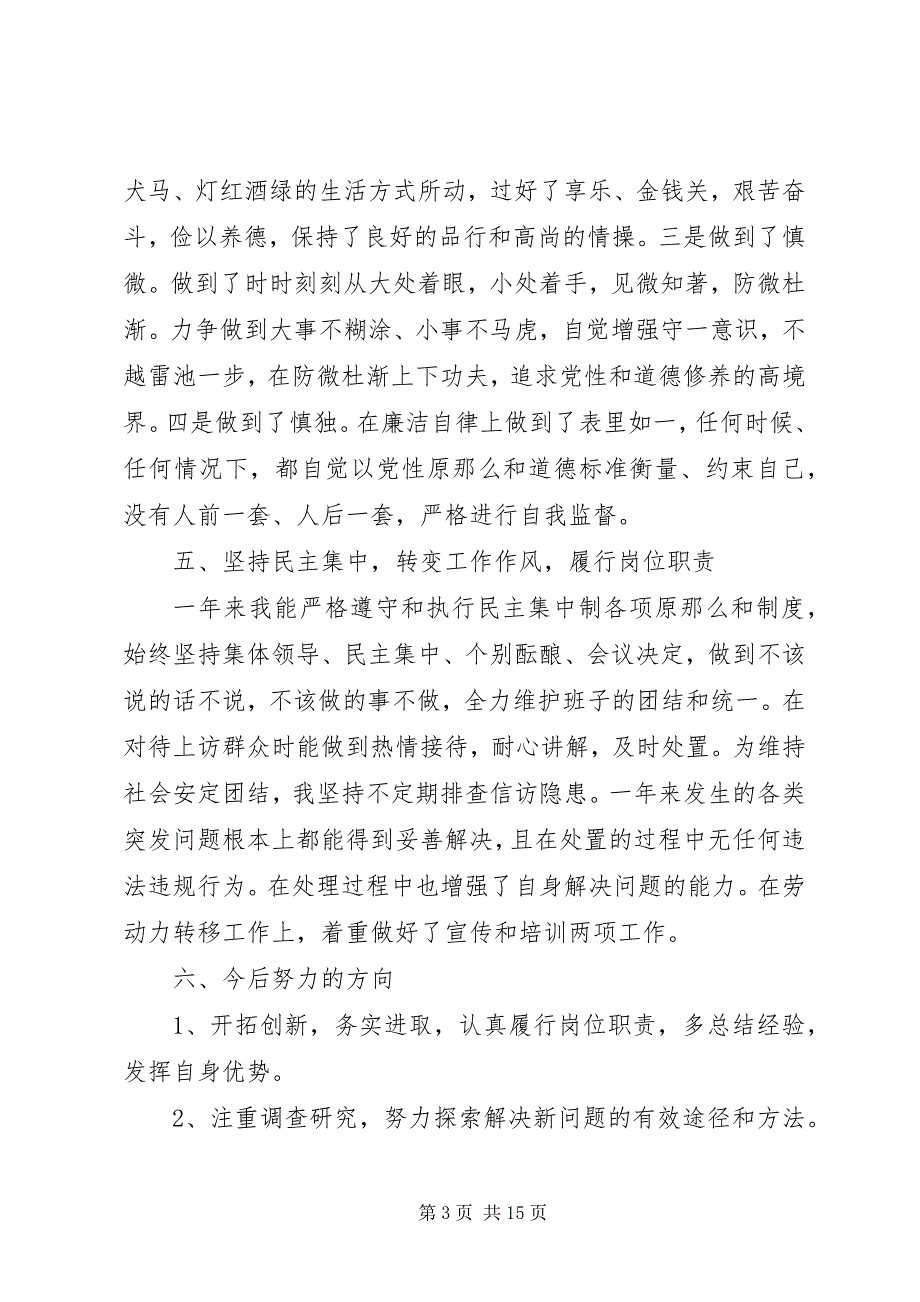 犬马、灯红酒绿的生活方式所动，过好了享乐、金钱关，艰苦奋
斗，俭以养德，保持了良好的品行和高尚的情操。三是做到了慎
微。做到了时时刻刻从大处着眼，小处着手，见微知著，防微杜
渐。力争做到大事不糊涂、小事不马虎，自觉增强守一意识，不
越雷池一步，在防微杜渐上下功夫，追求党性和道德修养的高境
界。四是做到了慎独。在廉洁自律上做到了表里如一，任何时候、
任何情况下，都自觉以党性原那么和道德标准衡量、约束自己，
没有人前一套、人后一套，严格进行自我监督。
五、坚持民主集中，转变工作作风，履行岗位职责
一年来我能严格遵守和执行民主集中制各项原那么和制度，
始终坚持集体领导、民主集中、个别酝酿、会议决定，做到不该
说的话不说，不该做的事不做，全力维护班子的团结和统一。在
对待上访群众时能做到热情接待，耐心讲解，及时处置。为维持
社会安定团结，我坚持不定期排查信访隐患。一年来发生的各类
突发问题根本上都能得到妥善解决，且在处置的过程中无任何违
法违规行为。在处理过程中也增强了自身解决问题的能力。在劳
动力转移工作上，着重做好了宣传和培训两项工作。
六、今后努力的方向
1、开拓创新，务实进取，认真履行岗位职责，多总结经验，
发挥自身优势。
2、注重调查研究，努力探索解决新问题的有效途径和方法。
第 3 页 共 15 页